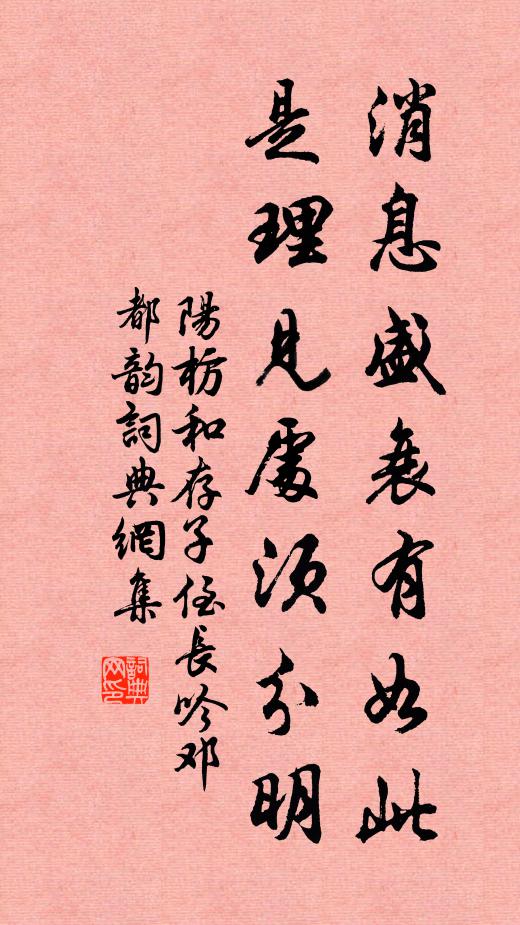 消息盛衰有如此
是理見處須分明
陽枋和存子侄長吟邓
都韵詞典網集
詞典網印